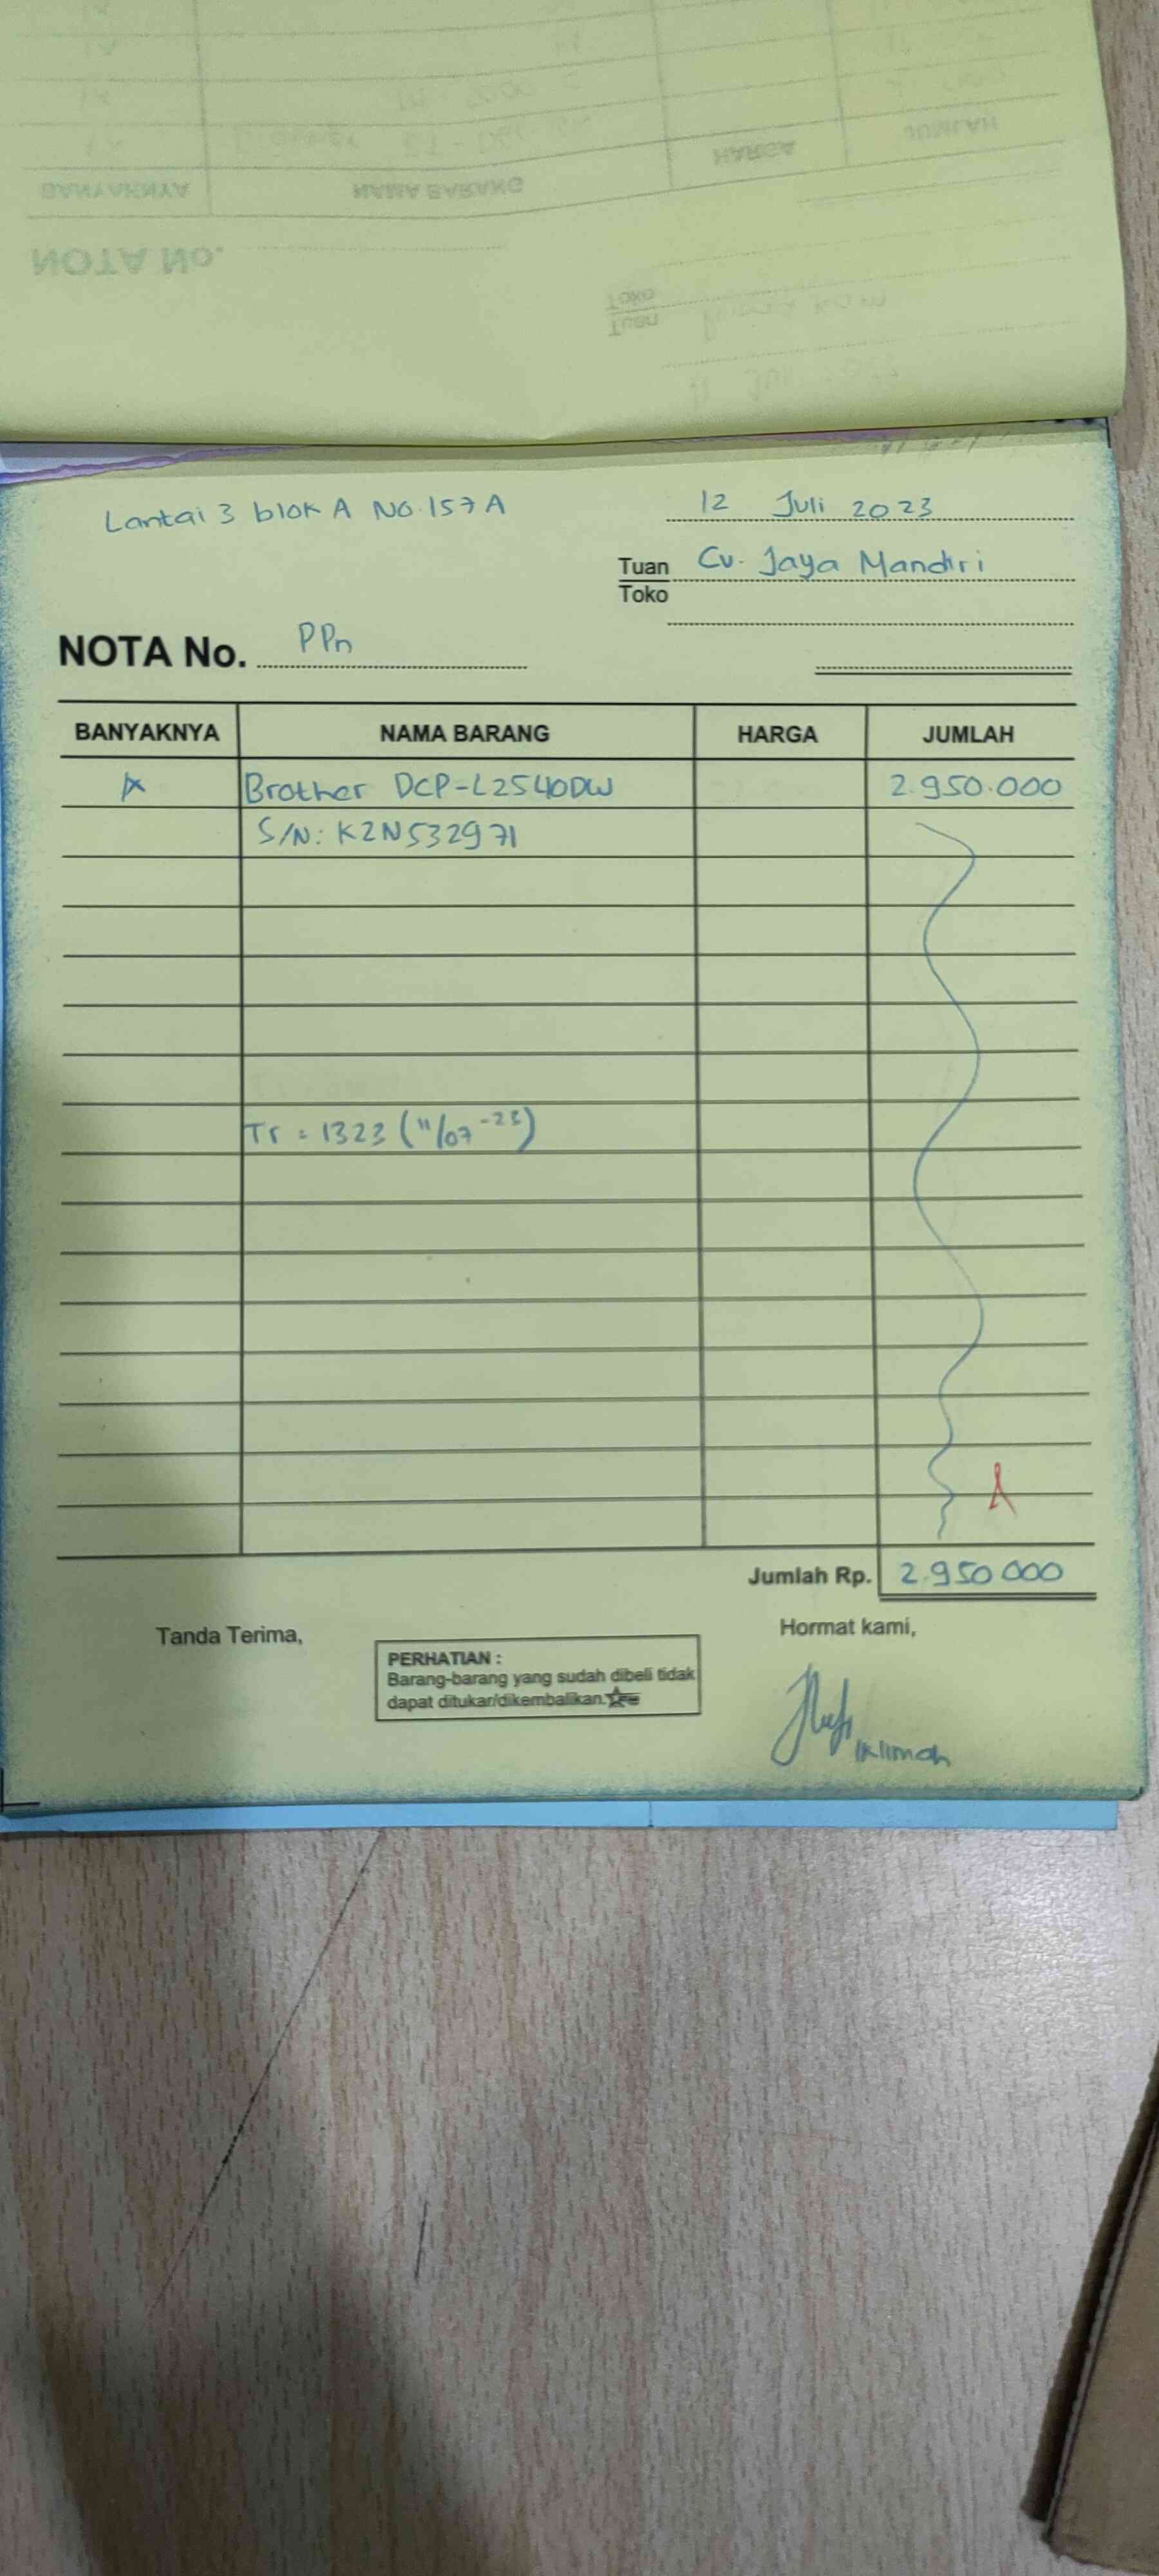 Lantai 3 blok A No.157A
12 Juli 2023
Tuan Cv. Jaya Mandiri
Toko
NOTA No. PPn
BANYAKNYA NAMA BARANG HARGA JUMLAH
Brother DCP-L2540DW 2.950.000
S/N: K2N532971
Tr = 1323 (11/07-23)
Jumlah Rp. 2.950.000
Tanda Terima,
Hormat kami,
PERHATIAN :
Barang-barang yang sudah dibeli tidak
dapat ditukar/dikembalikan.
Iklimah